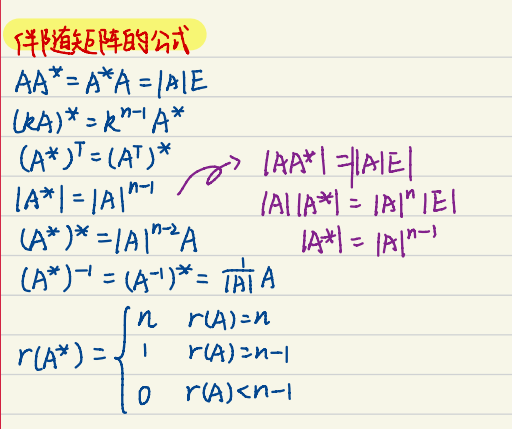 伴随矩阵的公式
AA* = A*A = |A|E
(kA)* = k^{n-1} A*
(A*)^T = (A^T)*
|A*| = |A|^{n-1}
|AA*| = ||A|E|
|A||A*| = |A|^n |E|
|A*| = |A|^{n-1}
(A*)* = |A|^{n-2} A
(A*)^{-1} = (A^{-1})* = \frac{1}{|A|} A
r(A*) = { n r(A)=n
1 r(A)=n-1
0 r(A)<n-1